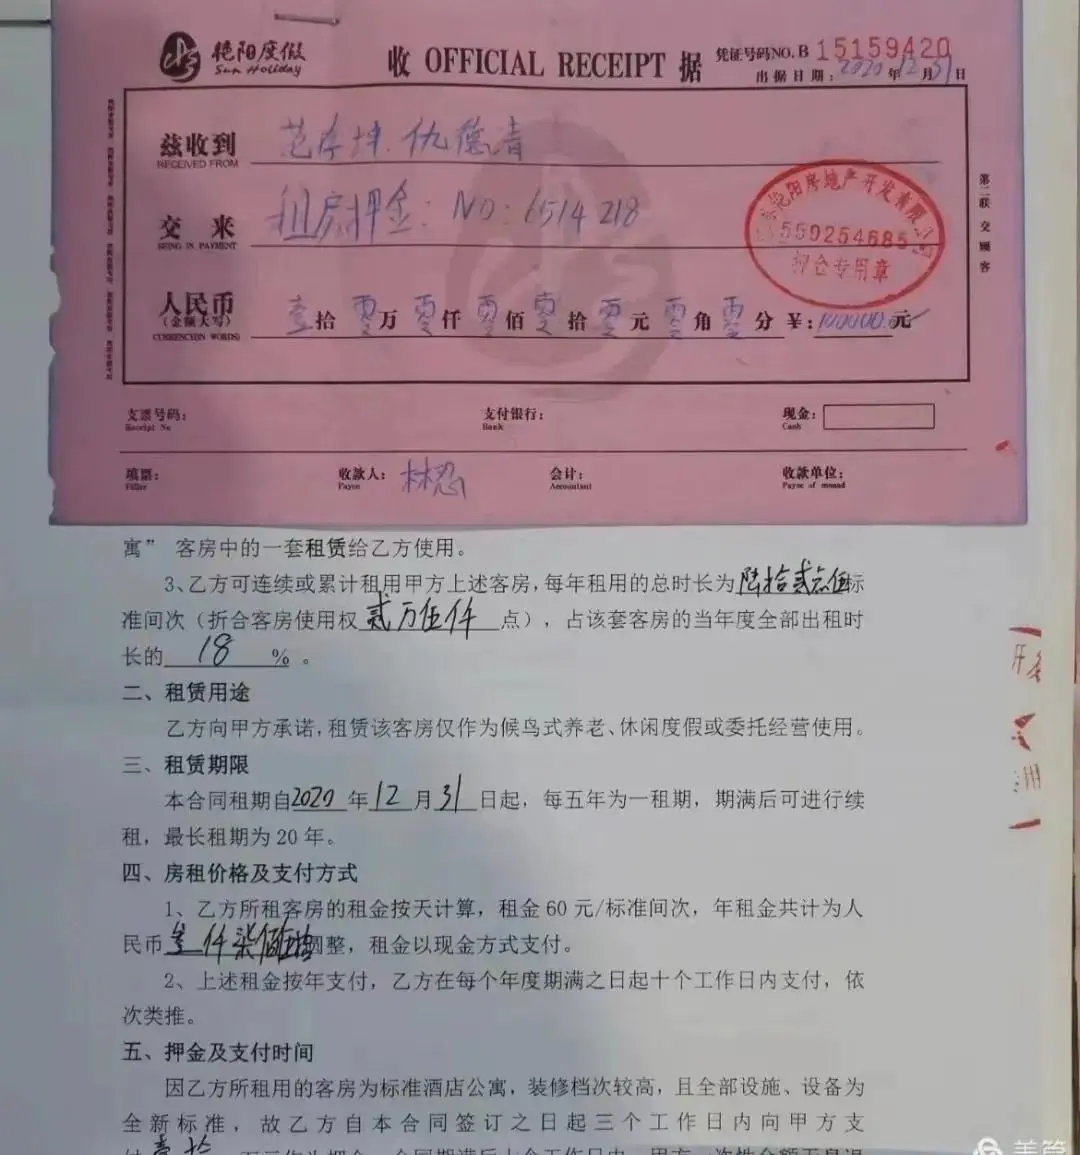 艳阳度假
Sun Holiday
收 OFFICIAL RECEIPT 据
凭证号码NO. B 15159420
出据日期：2020 年 12 月 31 日
兹收到
RECEIVED FROM
仇德青
交来
BEING IN PAYMENT
租房押金：NO：6514218
人民币
（金额大写）
CURRENCY(IN WORDS)
壹拾零万零仟零佰零拾零元零角零分 ￥：100000.元
艳阳房地产开发有限公司
5592254685
押金专用章
第二联 交顾客
支票号码：
Receipt No
支付银行：
Bank
现金：
Cash
填票：
Filler
收款人：
Payee
林忍
会计：
Accountant
收款单位：
Payee of monad
寓” 客房中的一套租赁给乙方使用。
3、乙方可连续或累计租用甲方上述客房，每年租用的总时长为陆拾贰点伍标
准间次（折合客房使用权 贰万伍仟 点），占该套客房的当年度全部出租时
长的 18 % 。
二、租赁用途
乙方向甲方承诺，租赁该客房仅作为候鸟式养老、休闲度假或委托经营使用。
三、租赁期限
本合同租期自2020 年 12 月 31 日起，每五年为一租期，期满后可进行续
租，最长租期为 20 年。
四、房租价格及支付方式
1、乙方所租客房的租金按天计算，租金 60 元/标准间次，年租金共计为人
民币 叁仟柒佰伍拾圆整，租金以现金方式支付。
2、上述租金按年支付，乙方在每个年度期满之日起十个工作日内支付，依
次类推。
五、押金及支付时间
因乙方所租用的客房为标准酒店公寓，装修档次较高，且全部设施、设备为
全新标准，故乙方自本合同签订之日起三个工作日内向甲方支
付 壹拾
美篇